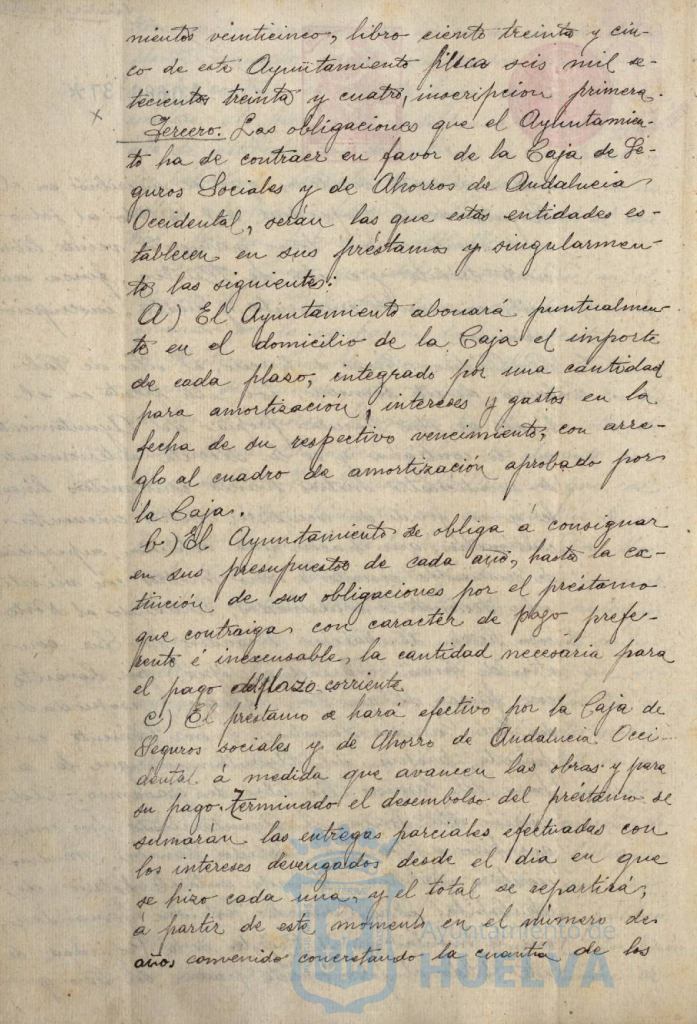 nientos veinticinco, libro ciento treinta y cin-
co de este Ayuntamiento finca seis mil se-
tecientos treinta y cuatro, inscripcion primera.
x
Tercero. Las obligaciones que el Ayuntamien-
to ha de contraer en favor de la Caja de Se-
guros Sociales y de Ahorros de Andalucia
Occidental, serán las que estas entidades es-
tablecen en sus préstamos y singularmen-
te las siguientes:
A) El Ayuntamiento abonará puntualmen-
te en el domicilio de la Caja el importe
de cada plazo, integrado por una cantidad
para amortización, intereses y gastos en la
fecha de su respectivo vencimiento, con arre-
glo al cuadro de amortización aprobado por
la Caja.
b) El Ayuntamiento se obliga á consignar
en sus presupuestos de cada año, hasta la ex-
tinción de sus obligaciones por el préstamo
que contraiga, con caracter de pago prefe-
rente é inexcusable, la cantidad necesaria para
el pago del plazo corriente
c) El préstamo se hará efectivo por la Caja de
Seguros sociales y de Ahorro de Andalucia Occi-
dental á medida que avancen las obras y para
su pago. Terminado el desembolso del préstamo se
sumarán las entregas parciales efectuadas con
los intereses devengados desde el dia en que
se hizo cada una, y el total se repartirá,
á partir de este momento en el número de
años convenido concretando la cuantía de los
Ayuntamiento de
HUELVA